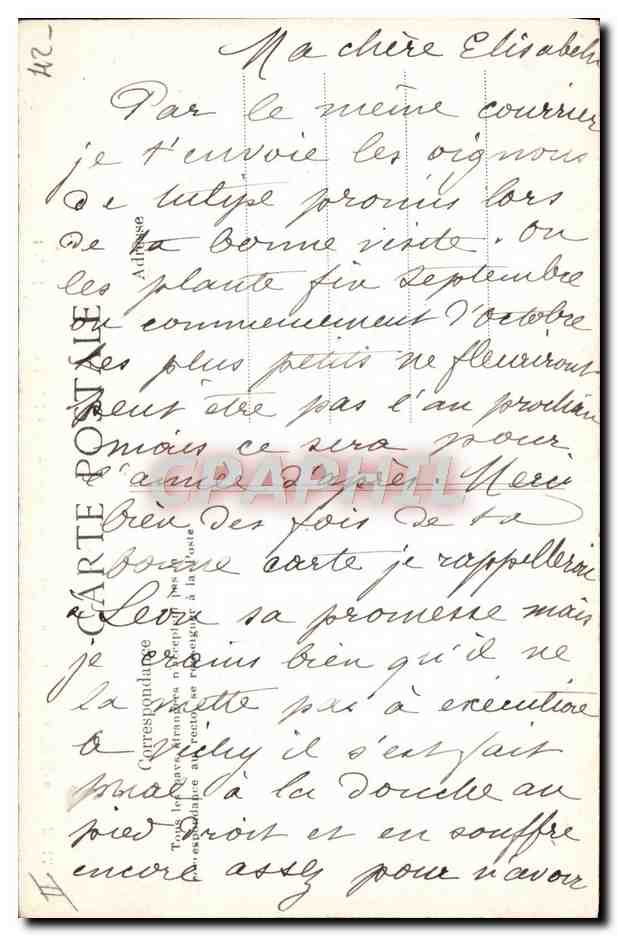 Ma chère Elisabeth
Par le même courrier
je t'envoie les oignons
de tulipe promis lors
de ta bonne visite. On
les plante fin septembre
ou commencement d'octobre
Les plus petits ne fleuriront
peut être pas l'an prochain
mais ce sera pour
l'année d'après. Merci
bien des fois de ta
bonne carte je rappellerai
à Léon sa promesse mais
je crains bien qu'il ne
la mette pas à exécution
A Vichy il s'est fait
mal à la douche au
pied droit et en souffre
encore assez pour n'avoir
CARTE POSTALE
Correspondance
Adresse
Tous les pays étrangers n'acceptent pas la
correspondance au recto, se renseigner à la Poste
42-
II
CPAPHIL